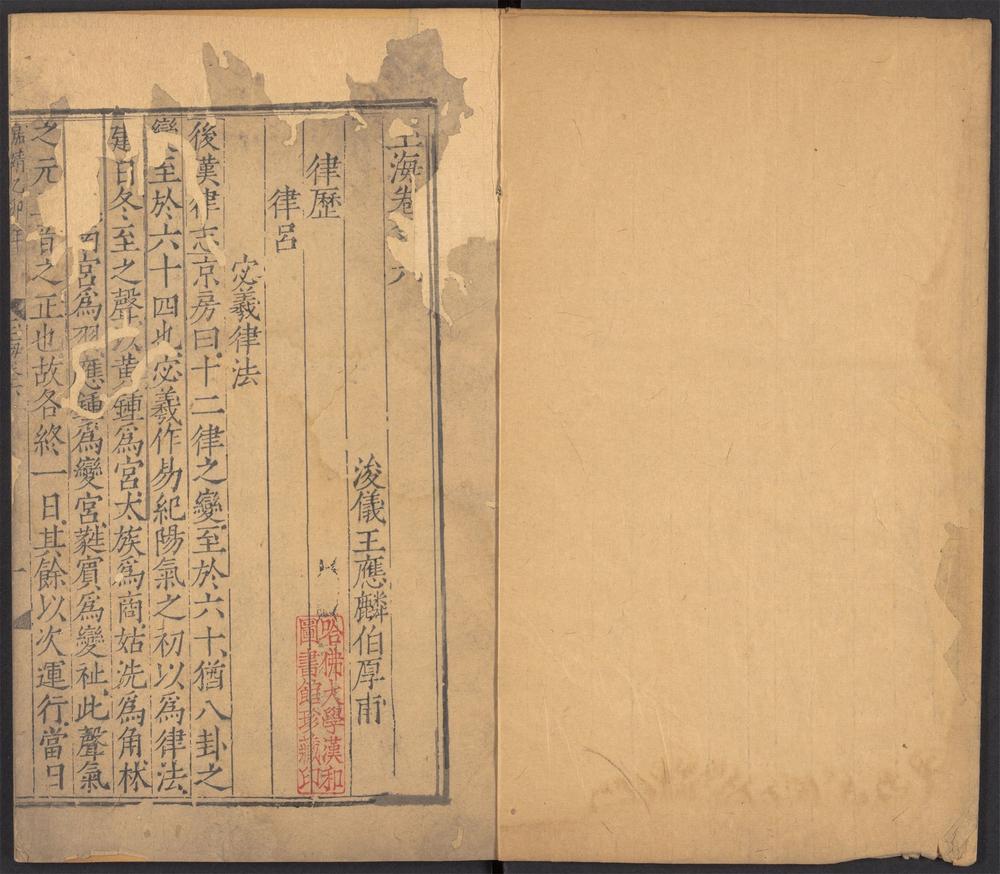 玉海卷 六
浚儀王應麟伯厚甫
律歷
律呂
宓羲律法
後漢律志京房曰十二律之變至於六十猶八卦之
變至於六十四也宓羲作易紀陽氣之初以為律法
建日冬至之聲以黃鍾為宮太族為商姑洗為角林
宮為羽應鍾為變宮蕤賓為變祉此聲氣
之元 首之正也故各終一日其餘以次運行當日
嘉靖乙卯年
玉海卷六
一
哈佛大學漢和
圖書館珍藏印